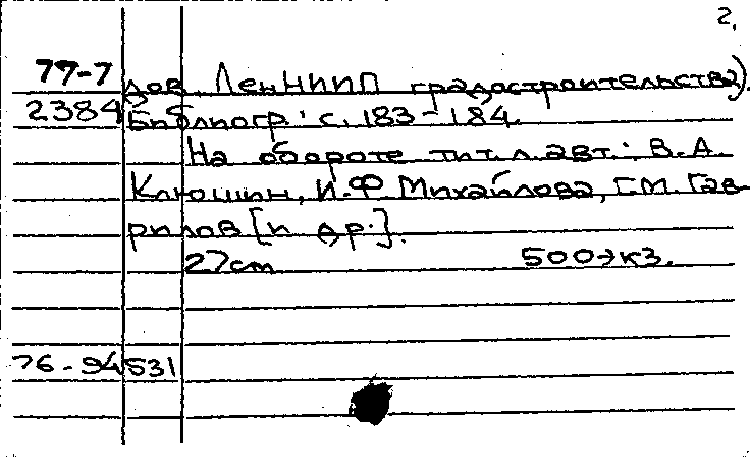 2.
77-7 дов. ЛенНИИП градостроительства).
2384 Библиогр.: с. 183-184.
На обороте тит. л. авт.: В.А.
Клюшин, И.Ф Михайлова, Г.М. Гав-
рилов [и др.].
27cm 500экз.
76-94531